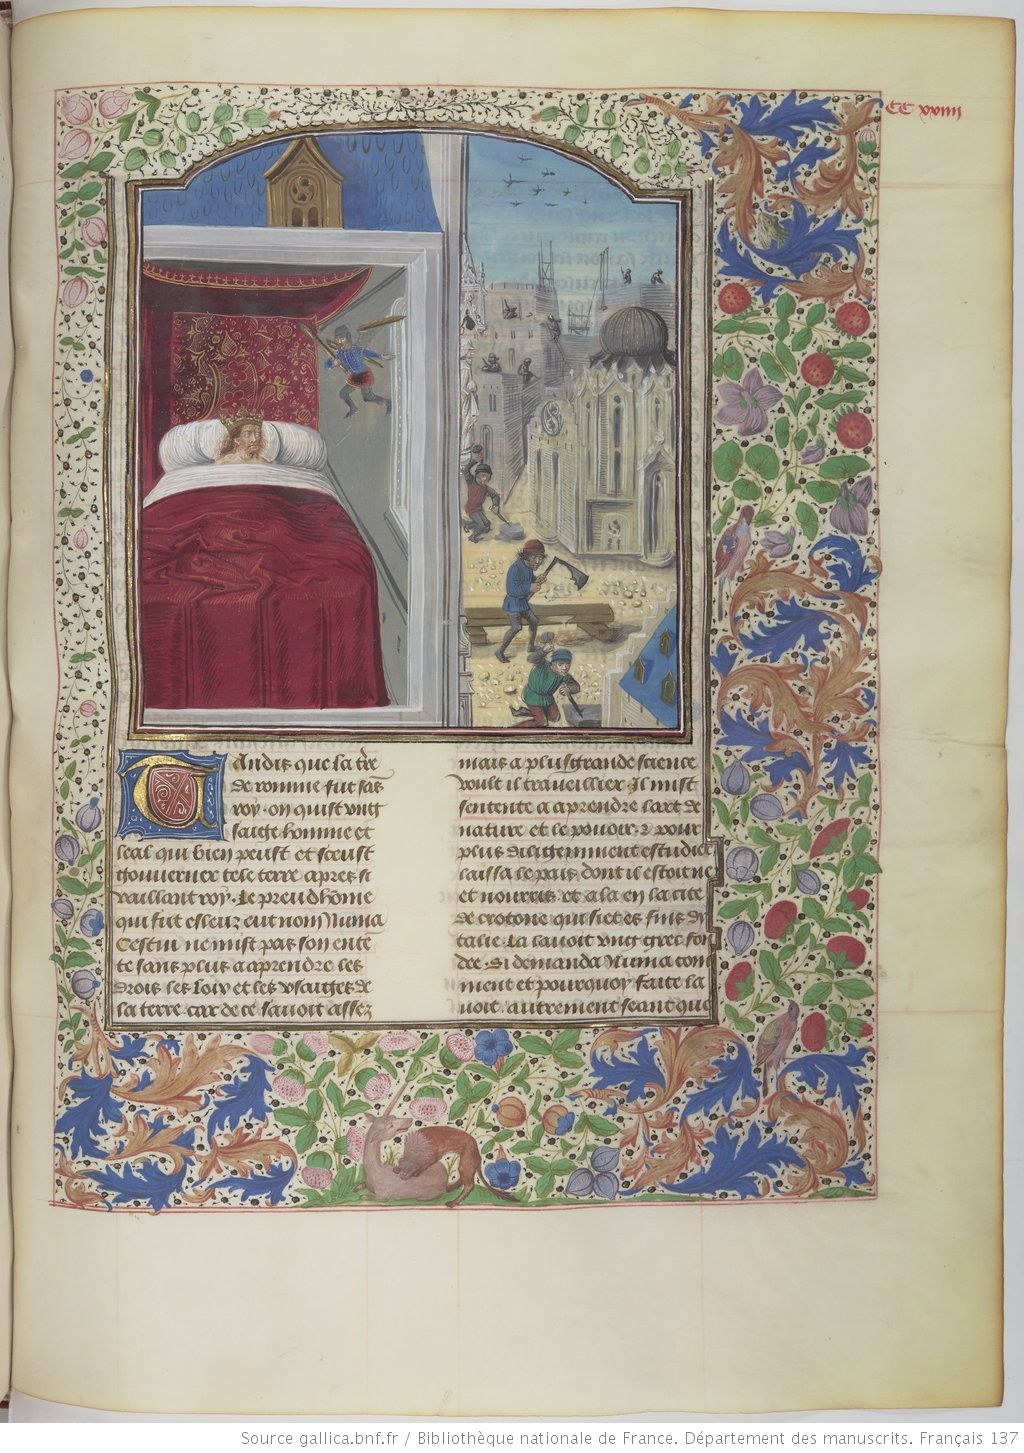 CC xxviii
Tandis que la tre
de romme fut sās
roy. on quist vng
saige homme et
leal qui bien peust et sceust
gouuerner tele terre apres si
vaillant roy. Le preudhōme
qui fut esleuz eut nom Numa
Cestui ne mist pas son ente
te sans plus a aprendre les
drois les loix et les vsaiges de
la terre. car de ce sauoit assez
mais a plus grande science
voult il traueillier. Il mist
sentente a aprendre lart de
nature et le pouoir. et pour
plus diligemment estudier
laissa le pais dont il estoit ne
et nourris. et ala en la cite
de crotone qui siet es fins dy
talie. La lauoit vng grec fon
dee. Si demanda Numa com
ment et pourquoy faite la
uoit. autrement seant que
Source gallica.bnf.fr / Bibliothèque nationale de France. Département des manuscrits. Français 137